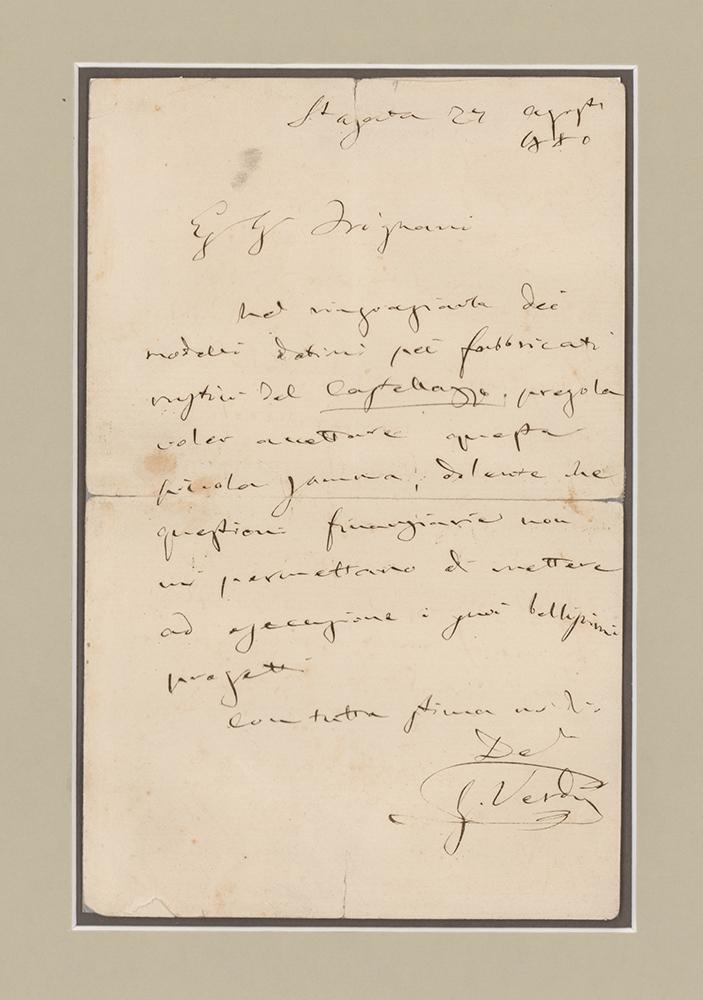 St agata 27 agosto
1880
Eg Sr Frignani
Nel ringraziarla dei
modelli datimi pei fabbricati
rustici del Castellazzo, pregola
voler accettare questa
piccola somma, dolente che
questioni finanziarie non
mi permettano di mettere
ad esecuzione i suoi bellissimi
progetti
Con tutta stima mi dico
G. Verdi